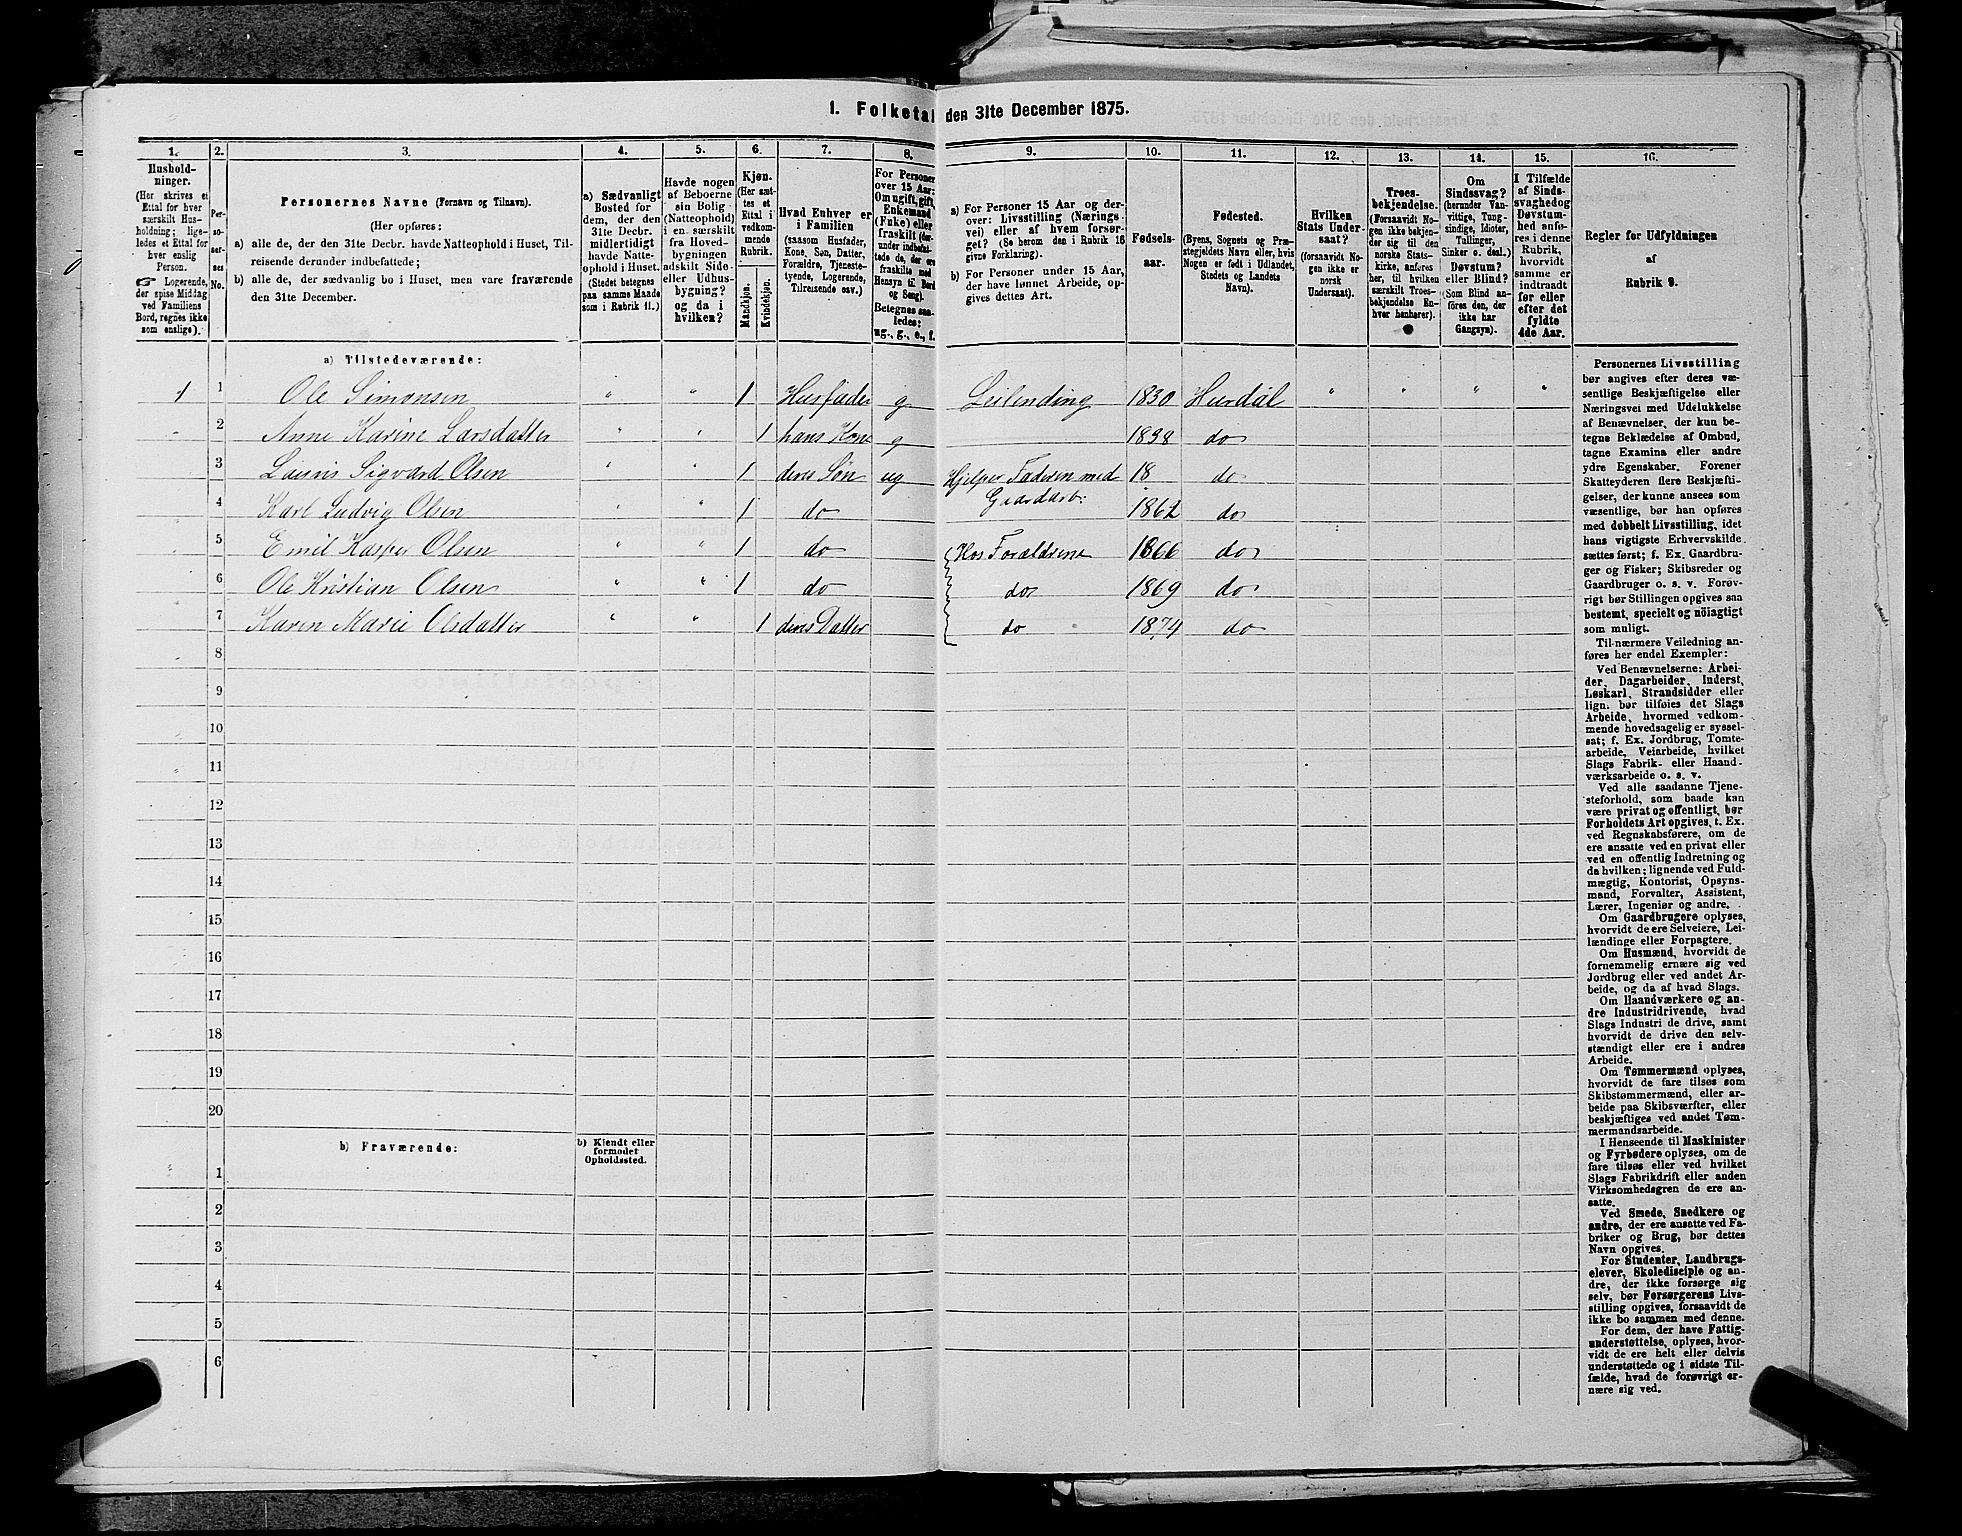 1. Folketal den 31te December 1875.
1. 2. 3. 4. 5. 6. 7. 8. 9. 10. 11. 12. 13. 14. 15. 16.
Hushold-
ninger.
(Her skrives et
Ettal for hver
særskilt Hus-
holdning; lige-
ledes et Ettal for
hver enslig
Person.
☞ Logerende,
der spise Middag
ved Familiens
Bord, regnes ikke
som enslige).
Per-
so-
ner-
nes
No.
Personernes Navne (Fornavn og Tilnavn).
(Her opføres:
a) alle de, der den 31te Decbr. havde Natteophold i Huset, Til-
reisende derunder indbefattede;
b) alle de, der sædvanlig bo i Huset, men vare fraværende
den 31te December.
a) Sædvanligt
Bosted for
dem, der den
31te Decbr.
midlertidigt
havde Natte-
ophold i Huset.
(Stedet betegnes
paa samme Maade
som i Rubrik 11.)
Havde nogen
af Beboerne
sin Bolig
(Natteophold)
i en særskilt
fra Hoved-
bygningen
adskilt Side-
eller Udhus-
bygning?
og da i
hvilken?
Kjøn.
(Her sæt-
tes et
Ettal i
vedkom-
mende
Rubrik.
Mandkjøn.
Kvindekjøn.
Hvad Enhver er
i Familien
(saasom Husfader,
Kone, Søn, Datter,
Forældre, Tjeneste-
tyende, Logerende,
Tilreisende osv.)
For Personer
over 15 Aar:
Om ugift, gift,
Enkemand
(Enke) eller
fraskilt (der-
under indbefat-
tede de, der ere
fraskilte med
Hensyn til Bord
og Seng).
Betegnes saa-
ledes:
ug., g., e., f.
a) For Personer 15 Aar og der-
over: Livsstilling (Nærings-
vei) eller af hvem forsør-
get? (Se herom den i Rubrik 16
givne Forklaring).
b) For Personer under 15 Aar,
der have lønnet Arbeide, op-
gives dettes Art.
Fødsels-
aar.
Fødested.
(Byens, Sognets og Præ-
stegjeldets Navn eller, hvis
Nogen er født i Udlandet,
Stedets og Landets
Navn).
Hvilken
Stats Under-
saat?
(forsaavidt No-
gen ikke er
norsk
Undersaat).
Troes-
bekjendelse.
(Forsaavidt No-
gen ikke bekjen-
der sig til den
norske Stats-
kirke, anføres
her, til hvilken
særskilt Troes-
bekjendelse En-
hver henhører).
Om
Sindssvag?
(herunder Van-
vittige, Tung-
sindige, Idioter,
Tullinger,
Sinker o. desl.)
Døvstum?
eller Blind?
(Som Blind an-
føres den, der
ikke har
Gangsyn).
I Tilfælde
af Sinds-
svaghed og
Døvstum-
hed anfø-
res i denne
Rubrik,
hvorvidt
samme er
indtraadt
før eller
efter det
fyldte
4de Aar.
Regler for Udfyldningen
af
Rubrik 9.
a) Tilstedeværende:
1 1 Ole Simonsen " " 1 Husfader g Leilending 1830 Hurdal " " " "
2 Anne Karine Larsdatter " " 1 hans Kone g 1838 do
3 Lauris Sigvard Olsen " " 1 deres Søn ug Hjelper Faderen med 18 do
Gaardarb:
4 Karl Ludvig Olsen " " 1 do 1862 do
5 Emil Kasper Olsen " " 1 do Hos Forældrene 1866 do
6 Ole Kristian Olsen " " 1 do do 1869 do
7 Karen Marie Olsdatter " " 1 deres Datter do 1874 do
8
9
10
11
12
13
14
15
16
17
18
19
20
b) Fraværende:
b) Kjendt eller
formodet
Opholdssted.
1
2
3
4
5
6
Personernes Livsstilling
bør angives efter deres væ-
sentlige Beskjæftigelse eller
Næringsvei med Udelukkelse
af Benævnelser, der kun be-
tegne Beklædelse af Ombud,
tagne Examina eller andre
ydre Egenskaber. Forener
Skatteyderen flere Beskjæfti-
gelser, der kunne ansees som
væsentlige, bør han opføres
med dobbelt Livsstilling, idet
hans vigtigste Erhvervskilde
sættes først; f. Ex. Gaardbru-
ger og Fisker; Skibsreder og
Gaardbruger o. s. v. Forøv-
rigt bør Stillingen opgives saa
bestemt, specielt og nøiagtigt
som muligt.
Til nærmere Veiledning an-
føres her endel Exempler:
Ved Benævnelserne: Arbei-
der, Dagarbeider, Inderst,
Løskarl, Strandsidder eller
lign. bør tilføies det Slags
Arbeide, hvormed vedkom-
mende hovedsagelig er syssel-
sat; f. Ex. Jordbrug, Tomte-
arbeide, Veiarbeide, hvilket
Slags Fabrik- eller Haand-
værksarbeide o. s. v.
Ved alle saadanne Tjene-
steforhold, som baade kan
være privat og offentligt, bør
Forholdets Art opgives, t. Ex.
ved Regnskabsførere, om de
ere ansatte ved en privat eller
ved en offentlig Indretning og
da hvilken; lignende ved Fuld-
mægtig, Kontorist, Opsyns-
mand, Forvalter, Assistent,
Lærer, Ingeniør og andre.
Om Gaardbrugere oplyses,
hvorvidt de ere Selveiere, Lei-
lændinge eller Forpagtere.
Om Husmænd, hvorvidt de
fornemmelig ernære sig ved
Jordbrug eller ved andet Ar-
beide, og da af hvad Slags.
Om Haandværkere og an-
dre Industridrivende, hvad
Slags Industri de drive, samt
hvorvidt de drive den selv-
stændigt eller ere i andres
Arbeide.
Om Tømmermænd oplyses,
hvorvidt de fare tilsøs som
Skibstømmermænd, eller ar-
beide paa Skibsværfter, eller
beskjæftiges ved andet Tøm-
mermandsarbeide.
I Henseende til Maskinister
og Fyrbødere oplyses, om de
fare tilsøs eller ved hvilket
Slags Fabrikdrift eller anden
Virksomhedsgren de ere an-
satte.
Ved Smede, Snedkere og
andre, der ere ansatte ved Fa-
briker og Brug, bør dettes
Navn opgives.
For Studenter, Landbrugs-
elever, Skoledisciple og an-
dre, der ikke forsørge sig
selv, bør Forsørgerens Livs-
stilling opgives, forsaavidt de
ikke bo sammen med denne.
For dem, der have Fattig-
understøttelse, oplyses, hvor-
vidt de ere helt eller delvis
understøttede og i sidste Til-
fælde, hvad de forøvrigt er-
nære sig ved.